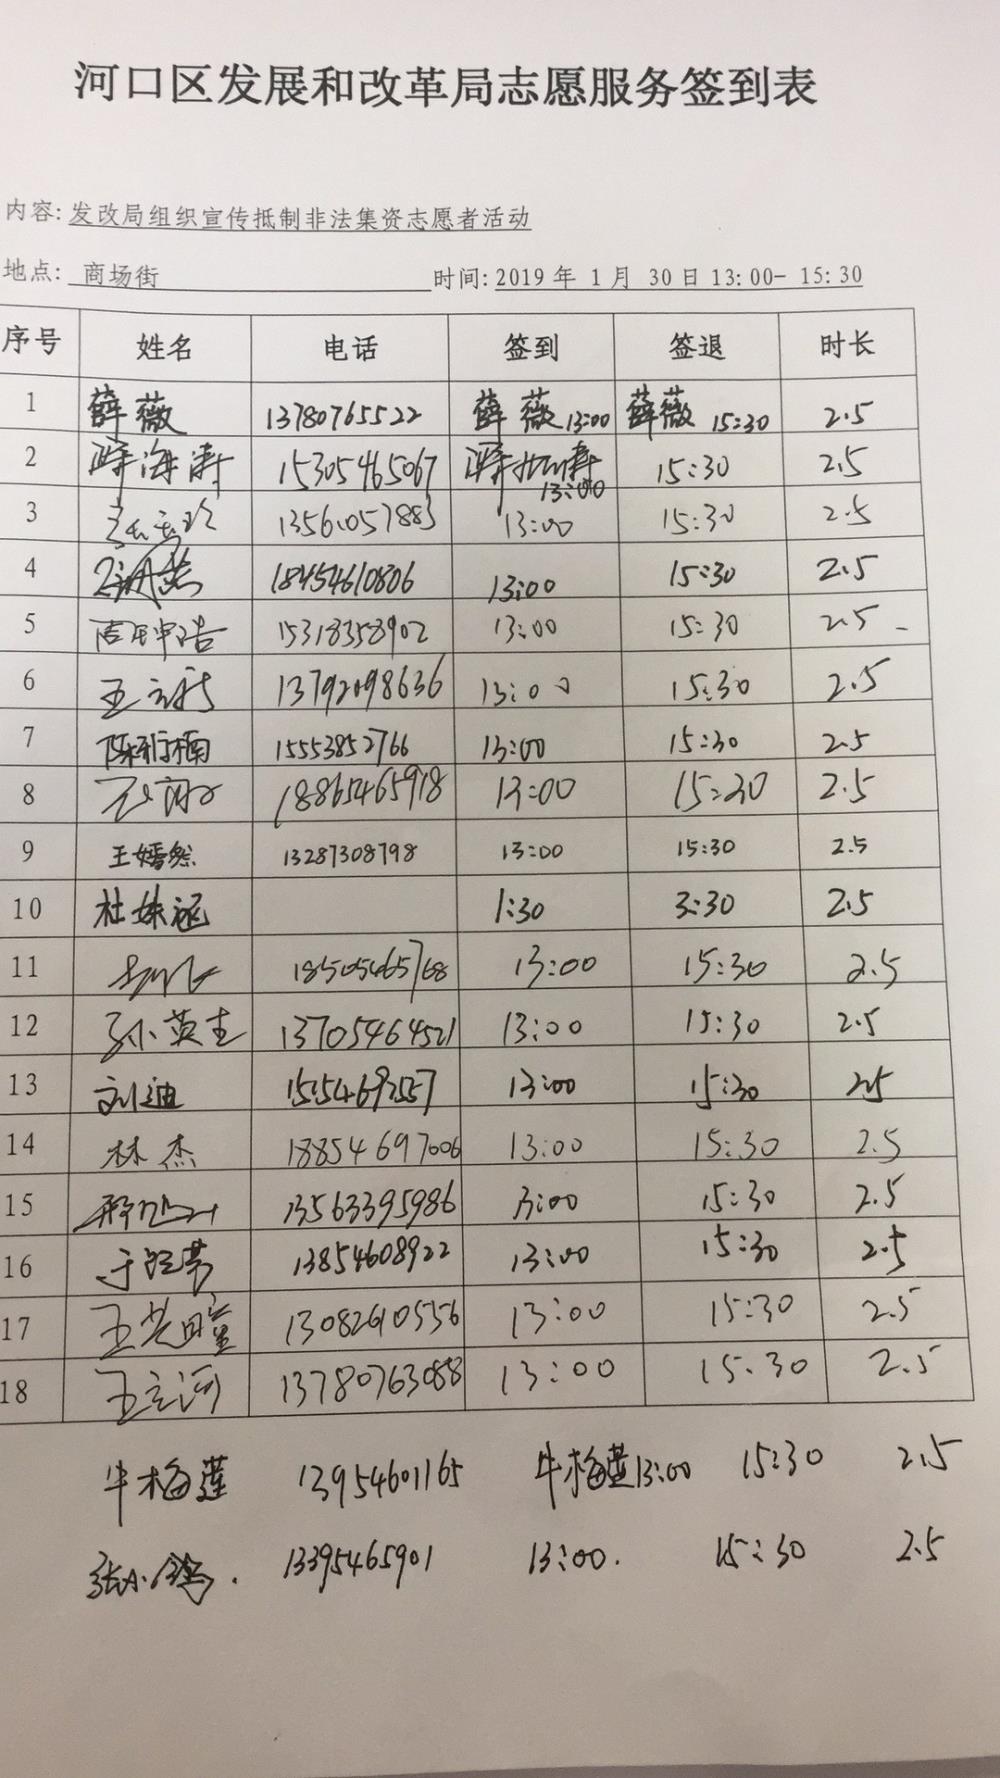 河口区发展和改革局志愿服务签到表
内容: 发改局组织宣传抵制非法集资志愿者活动
地点: 商场街 时间: 2019 年 1 月 30 日 13:00- 15:30
序号 姓名 电话 签到 签退 时长
1 薛薇 13780765522 薛薇 13:00 薛薇 15:30 2.5
2 薛海涛 15305465067 13:00 15:30 2.5
3 13561057883 13:00 15:30 2.5
4 18454610806 13:00 15:30 2.5
5 15318358902 13:00 15:30 2.5
6 王立新 13792098636 13:00 15:30 2.5
7 15553852766 13:00 15:30 2.5
8 18865465918 13:00 15:30 2.5
9 王嫣然 13287308798 13:00 15:30 2.5
10 杜姝涵 1:30 3:30 2.5
11 18505465768 13:00 15:30 2.5
12 孙英杰 13705464521 13:00 15:30 2.5
13 刘迪 13:00 15:30 2.5
14 林杰 18854697006 13:00 15:30 2.5
15 13563395986 13:00 15:30 2.5
16 13854608922 13:00 15:30 2.5
17 王光瞳 13082610556 13:00 15:30 2.5
18 王立河 13780763088 13:00 15:30 2.5
牛梅莲 13954601165 牛梅莲 13:00 15:30 2.5
13395465901 13:00. 15:30 2.5